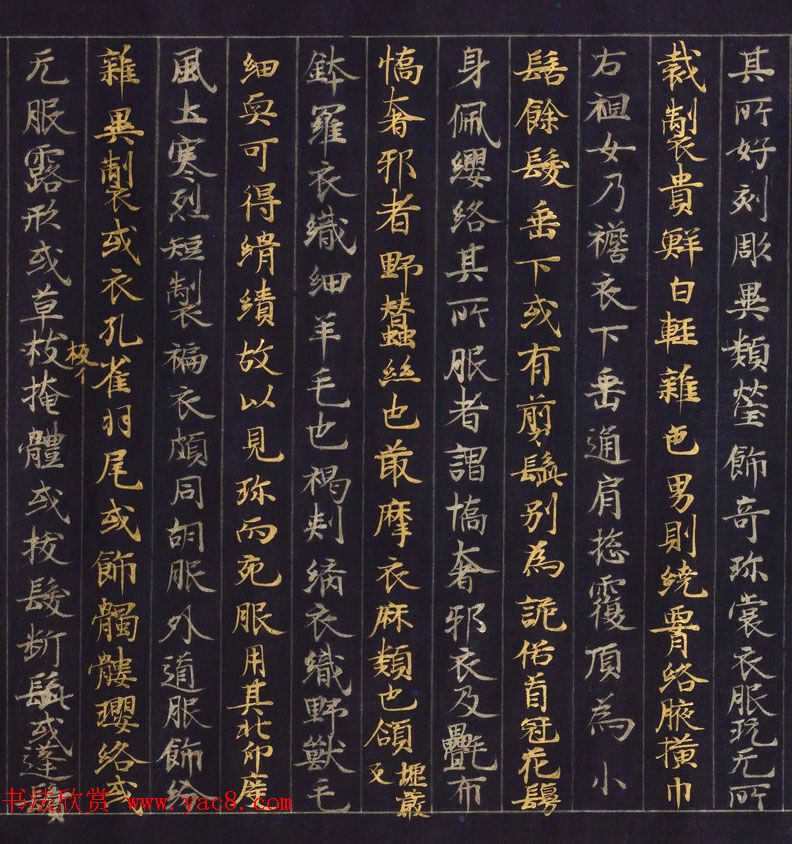 其所好刻彫異類瑩飾奇珎裳衣服玩无所
裁製貴鮮白輕雜色男則繞胷絡腋撗巾
右袒女乃襜衣下垂通肩揔覆頂為小
髻餘髮垂下或有剪鬚別為詭俗首冠花鬘
身佩纓絡其所服者謂憍奢邪衣及㲲布
憍奢邪者野蠶絲也菆摩衣麻類也頷墟嚴反
鉢羅衣織細羊毛也褐剌縭衣織野獸毛
細耎可得緝績故以見珎而充服用其北印度
風土寒烈短製褊衣頗同胡服外道服飾紛
雜異製或衣孔雀羽尾或飾髑髏瓔絡或
无服露形或草枝掩體或拔髮斷鬚或蓬
板イ
书法欣赏 www.yac8.com